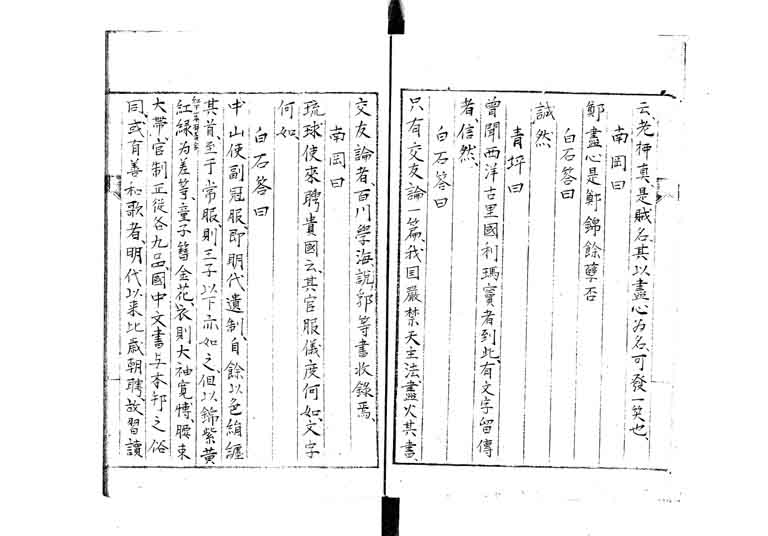 云、老神真、是賊名、其以盡心为名、可發一笑也、
南岡曰
鄭盡心是鄭錦餘孽否
白石答曰
誠然、
青坪曰
曾聞西洋古里國利瑪竇者到此、有文字留傳
者、信然、
白石答曰
只有交友論一篇、我国嚴禁天主法、盡火其書、
交友論者、百川學海說郛等書收錄焉、
南岡曰
琉球使來聘貴國云、其官服儀度何如、文字
何如、
白石答曰
中山使副冠服、即明代遺制、自餘以色絹纏
其首、至于常服則王子以下亦如之、但以錦紫黄
紅緑为差等、童子簪金花、衣則大袖寛愽、腰束
大帶、官制正從各九品、國中文書与本邦之俗
同、或有善和歌者、明代以来比歳朝聘、故習讀